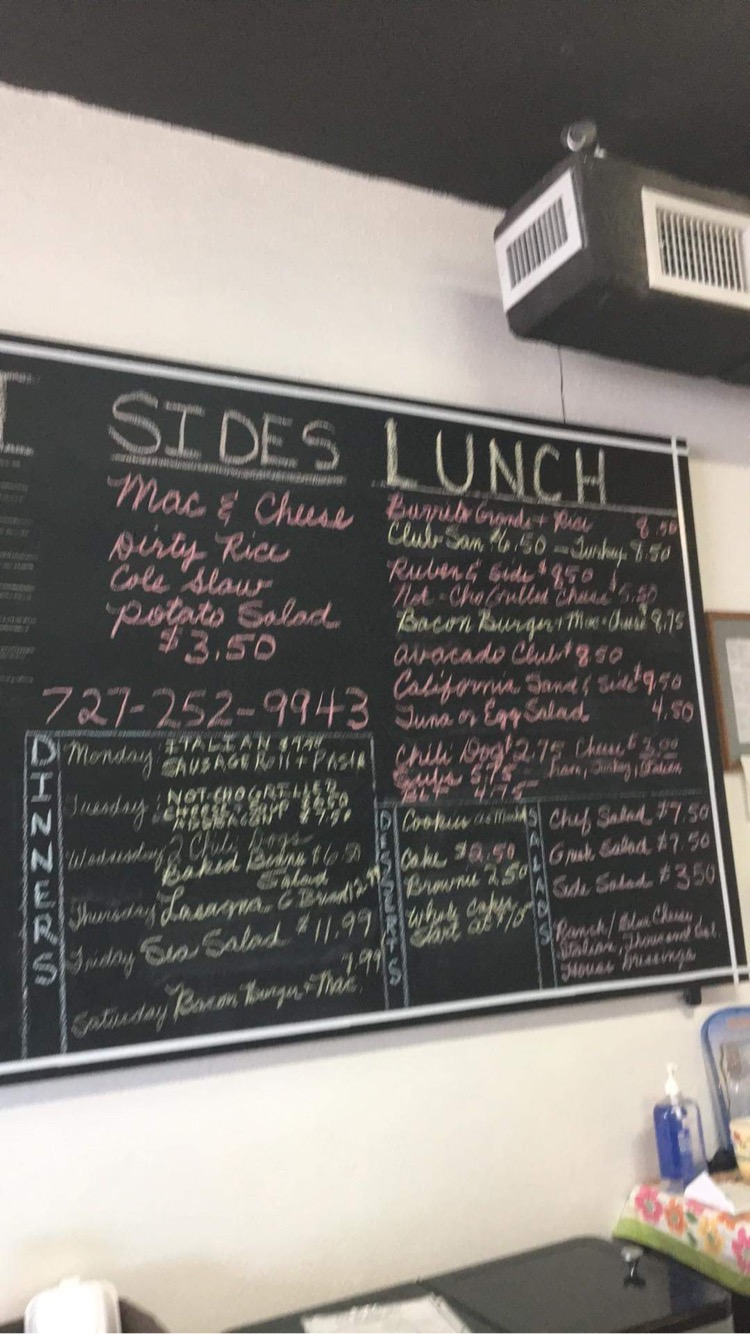 SIDES
Mac & Cheese
Dirty Rice
Cole Slaw
Potato Salad
$3.50
727-252-9943
LUNCH
Burrito Grande + Rice 8.50
Club San $6.50 - Turkey 8.50
Ruben & Side $8.50
Not-Cho Grilled Cheese $5.50
Bacon Burger + Mac-Cheese $8.75
Avocado Club $8.50
California Sand & Side $9.50
Tuna or Egg Salad 4.50
Chili Dog $2.75 Cheese $3.00
Subs 5.75 - Ham, Turkey, Italian
BLT 4.75
DINNERS
Monday: ITALIAN
SAUSAGE ROLL + PASTA
Tuesday: NOT CHO GRILLED
CHEESE
Wednesday 2 Chili Dogs
Baked Beans $6.50
Salad
Thursday Lasagna G Bread
Friday Sea Salad $11.99
7.99
Saturday Bacon Burger + Mac
DESSERTS
Cookies
Cake $2.50
Brownie 2.50
Whole Cakes
Start at
SALADS
Chef Salad $7.50
Greek Salad $7.50
Side Salad $3.50
Ranch / Blue Cheese
Italian, Thousand Isl.
House Dressings